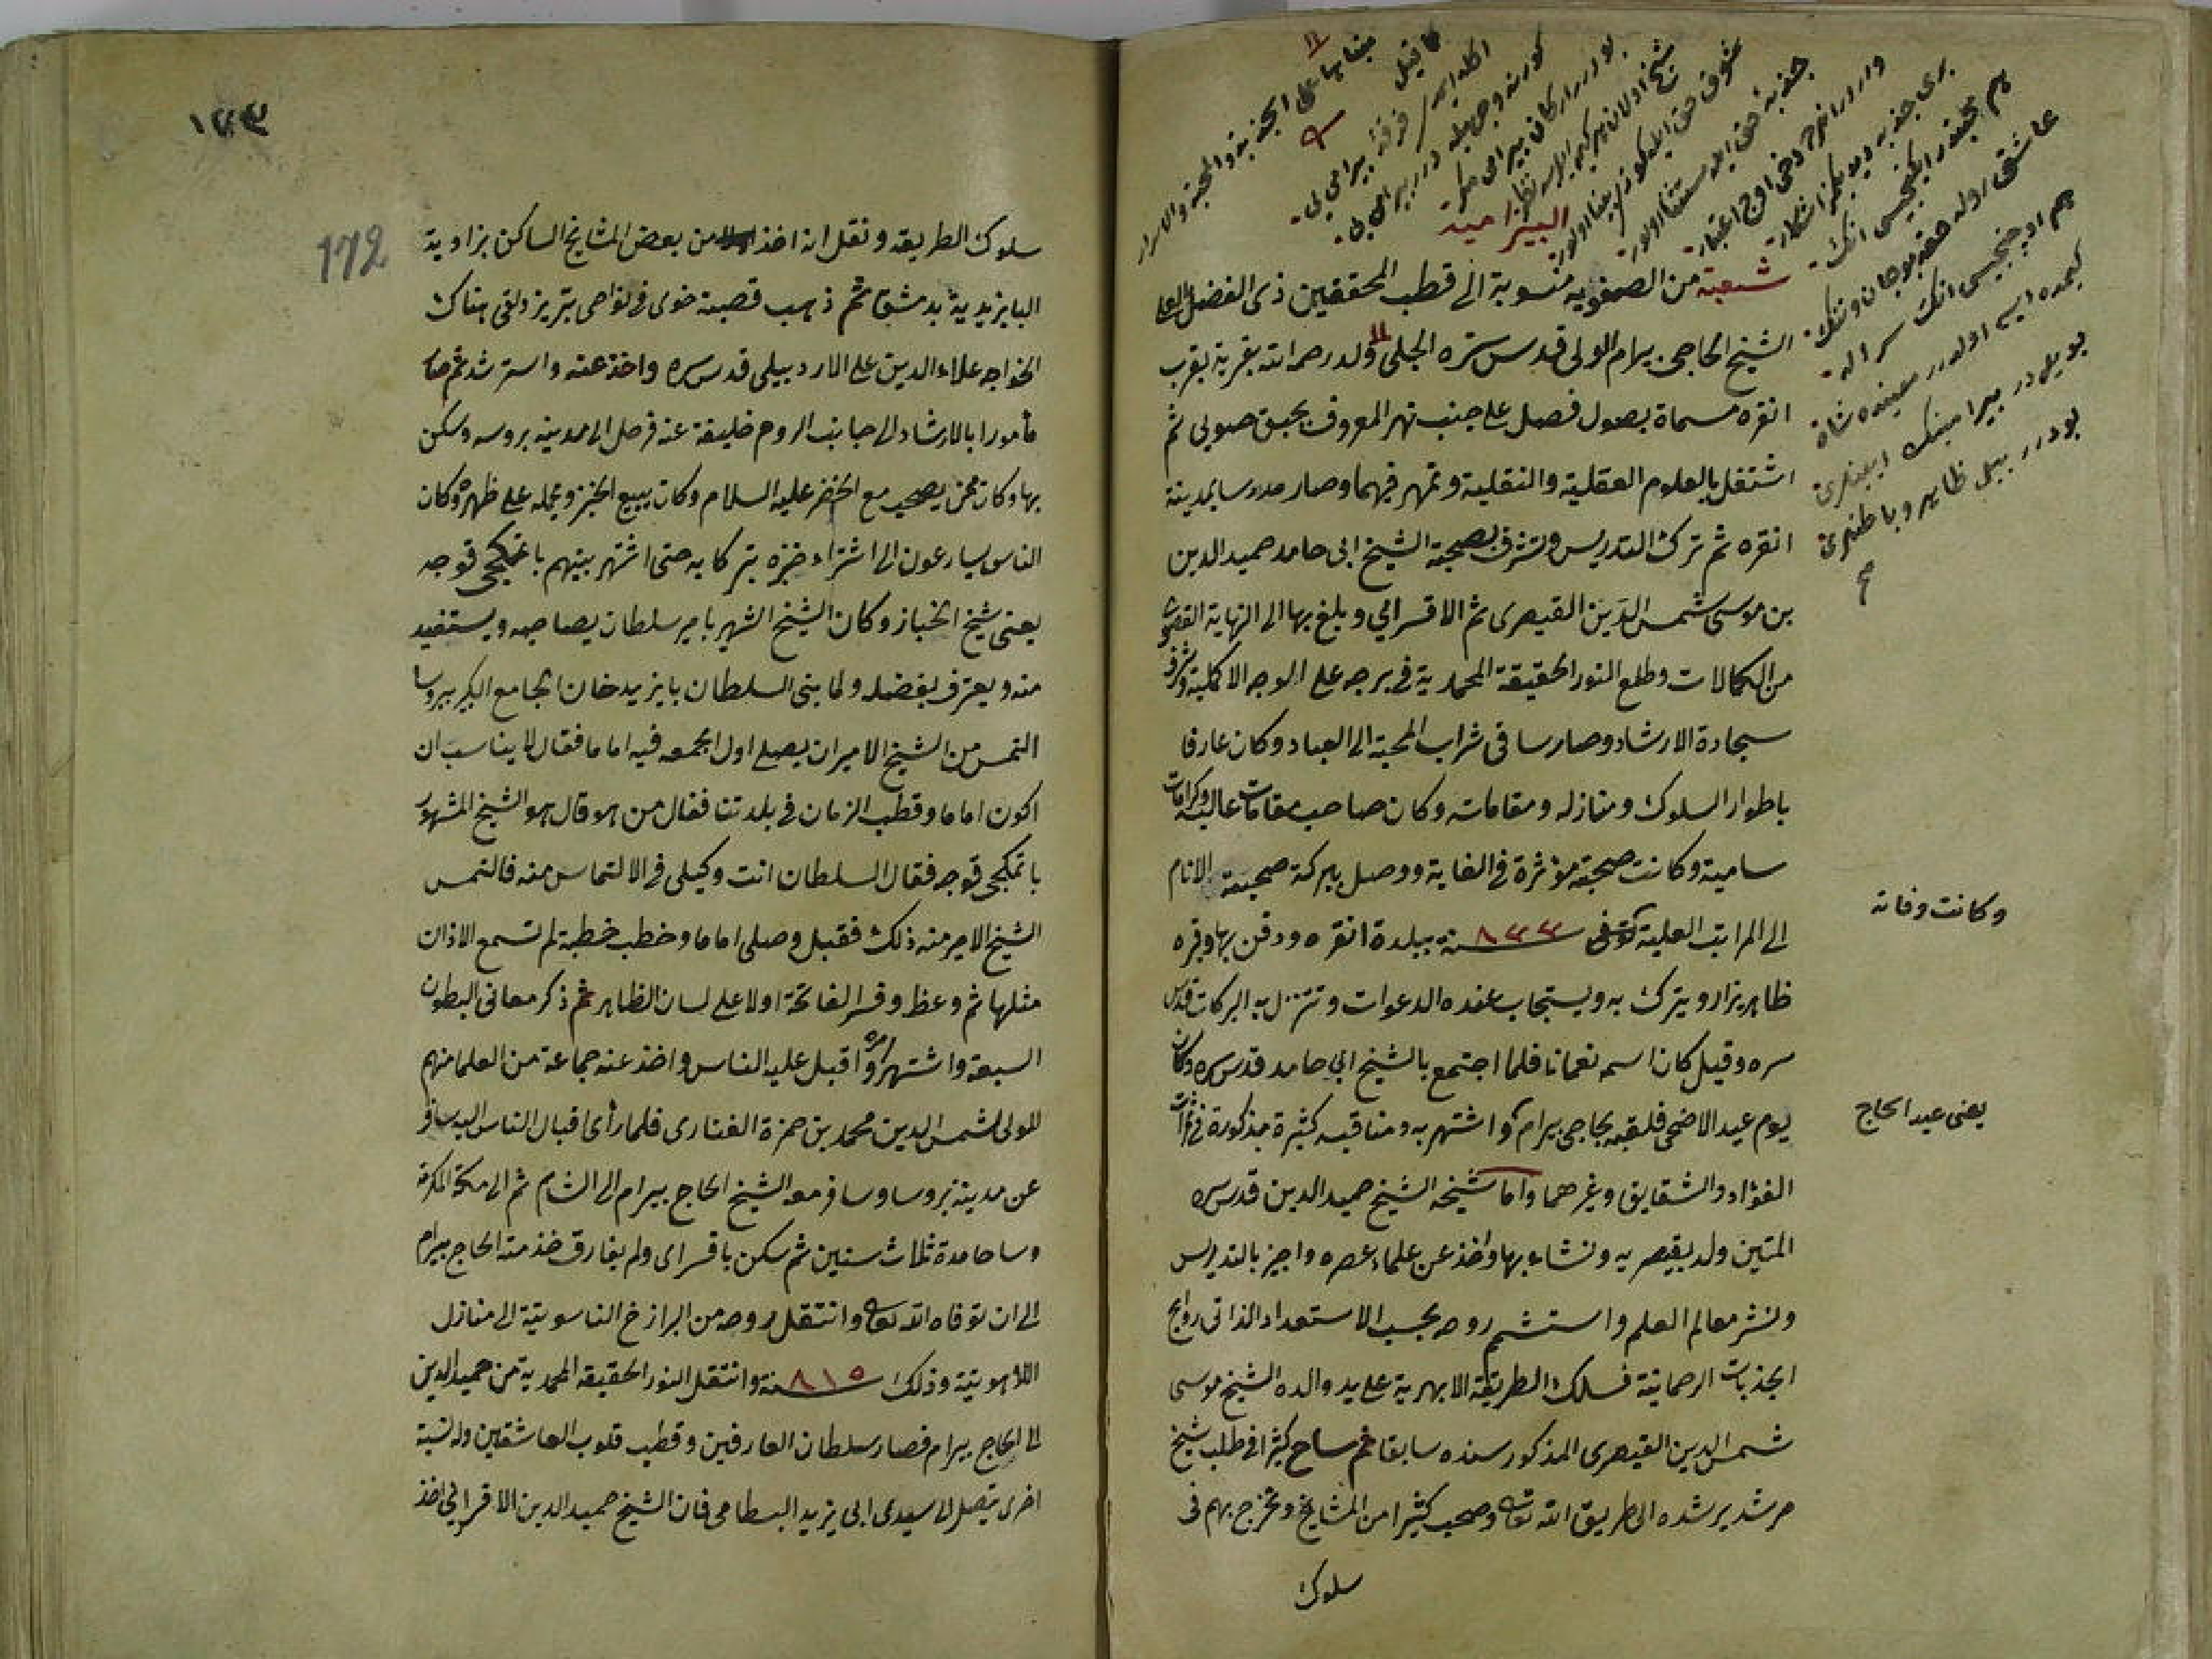 البيرامية
شعبة من الصفويه منسوبة الى قطب المحققين ذى الفضل العلى
الشيخ الحاجى بيرام الولى قدس سره الجلى ولد رحمه الله بقرية بقرب
انقره مسماة بصول فصل على جنب نهر المعروف بجبق صويى ثم
اشتغل بالعلوم العقلية والنقلية وتمهر فيهما وصار مدرسا بمدينة
انقره ثم ترك التدريس وتشرف بصحبة الشيخ ابى حامد حميد الدين
بن موسى شمس الدين القيصرى ثم الاقسرايي وبلغ بها الى النهاية القصوى
من الكمالات وطلع النور الحقيقة المحمدية فى برجه على الوجه الاكملية وشرف
سجادة الارشاد وصار ساقى شراب المحبة الى العباد وكان عارفا
باطوار السلوك ومنازله ومقاماته وكان صاحب مقامات عاليه وكرامات
سامية وكانت صحبته مؤثرة فى الغاية ووصل ببركة صحبته الانام
الى المراتب العلية توفى سنة ٨٣٣ ببلدة انقره ودفن بها وقبره
ظاهر يزار ويتبرك به ويستجاب عنده الدعوات وتتنزل به البركات قدس
سره وقيل كان اسمه نعمانا فلما اجتمع بالشيخ ابى حامد قدس سره وكان
يوم عيد الاضحى فلقبه بحاجى بيرام واشتهر به ومناقبه كثيرة مذكورة فى ثمرات
الفؤاد والشقايق وغيرهما واما شيخه الشيخ حميد الدين قدس سره
المتين ولد بقيصريه ونشاء بها واخذ عن علماء عصره واجيز بالتدريس
ونشر معالم العلم واستشم روحه بحسب الاستعداد الذاتى روايح
الجذبات الرحمانية فسلك الطريقة الابهرية على يد والده الشيخ موسى
شمس الدين القيصرى المذكور سنده سابقا ثم ساح كثيرا فى طلب شيخ
مرشد يرشده الى طريق الله تعالى وصحب كثيرا من المشايخ وتخرج بهم فى
سلوك
وكانت وفاته
يعنى عيد الحاج
١٧٣
172
سلوك الطريقه ونقل انه اخذ من بعض المشايخ الساكن بزاوية
البايزيدية بدمشق ثم ذهب قصبة خوى فى نواحى تبريز ولقى هناك
الخواجه علاء الدين على الاردبيلى قدس سره واخذ عنه واسترشد ثم صار
مأمورا بالارشاد الى جانب الروم خليفة عنه فرحل الى مدينة بروسه وسكن
بها وكان ممن يصحب مع الخضر عليه السلام وكان يبيع الخبز ويحمله على ظهره وكان
الناس يسارعون الى اشتراء خبزه تبركا به حتى اشتهر بينهم باتمكجى قوجه
يعنى شيخ الخباز وكان الشيخ الشهير بامير سلطان يصاحبه ويستفيد
منه ويعترف بفضله ولما بنى السلطان بايزيد خان الجامع الكبير ببروسا
التمس من الشيخ الامير ان يصلى اول الجمعه فيه اماما فقال لا يناسب ان
اكون اماما وقطب الزمان فى بلدتنا فقال من هو قال هو الشيخ المشهور
باتمكجى قوجه فقال السلطان انت وكيلى فى الالتماس منه فالتمس
الشيخ الامير منه ذلك فقبل وصلى اماما وخطب خطبة لم تسمع الاذان
مثلها ثم وعظ وفسر الفاتحة اولا على لسان الظاهر ثم ذكر معانى البطون
السبعة واشتهر امره واقبل عليه الناس واخذ عنه جماعة من العلما منهم
المولى شمس الدين محمد بن حمزة الفنارى فلما رأى اقبال الناس اليه سافر
عن مدينة بروسا وسافر معه الشيخ الحاج بيرام الى الشام ثم الى مكة المكرمة
وساحا مدة ثلاث سنين ثم سكن باقسراى ولم يفارق خدمته الحاج بيرام
الى ان توفاه الله تعالى وانتقل روحه من البرازخ الناسوتية الى منازل
اللاهوتية وذلك سنة ٨١٥ وانتقل النور الحقيقة المحمدية من حميد الدين
الى الحاج بيرام فصار سلطان العارفين وقطب قلوب العاشقين وله نسبة
اخرى يتصل الى سيدى ابى يزيد البسطامى فان الشيخ حميد الدين الاقسرايي اخذ